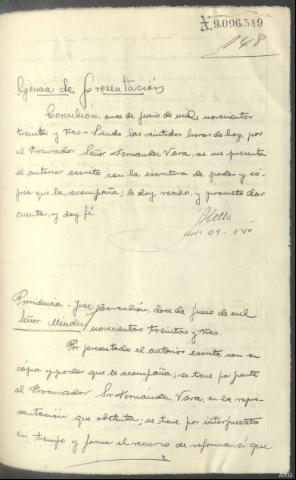 A.9.096.549
148
Agencia de Presentación
Corcubion, once de junio de mil novecientos
treinta y tres.- Siendo las veintidos horas de hoy, por
el Procurador Señor Fernandez Vara, se me presenta
el anterior escrito con la escritura de poder y co-
pia que le acompaña; le doy recibo, y prometo dar
cuenta, y doy fé.
Providencia - Juez
Señor Mendez
Corcubión, doce de Junio de mil
novecientos treinta y tres.
Por presentado el anterior escrito con su
copia y poder que le acompaña; se tiene por parte
al Procurador Sr. Fernandez Vara, en la repre-
sentación que ostenta; se tiene por interpuesto
en tiempo y forma el recurso de reforma á que